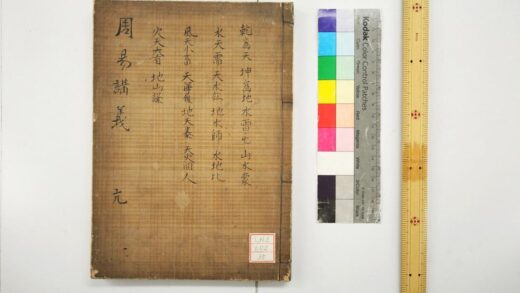 乾為天 坤為地 水雷屯 山水蒙
水天需 天水訟 地水師 水地比
風天小畜 天澤履 地天泰 天火同人
火天大有 地山謙
周易講義 元
Kodak Color Control Patches